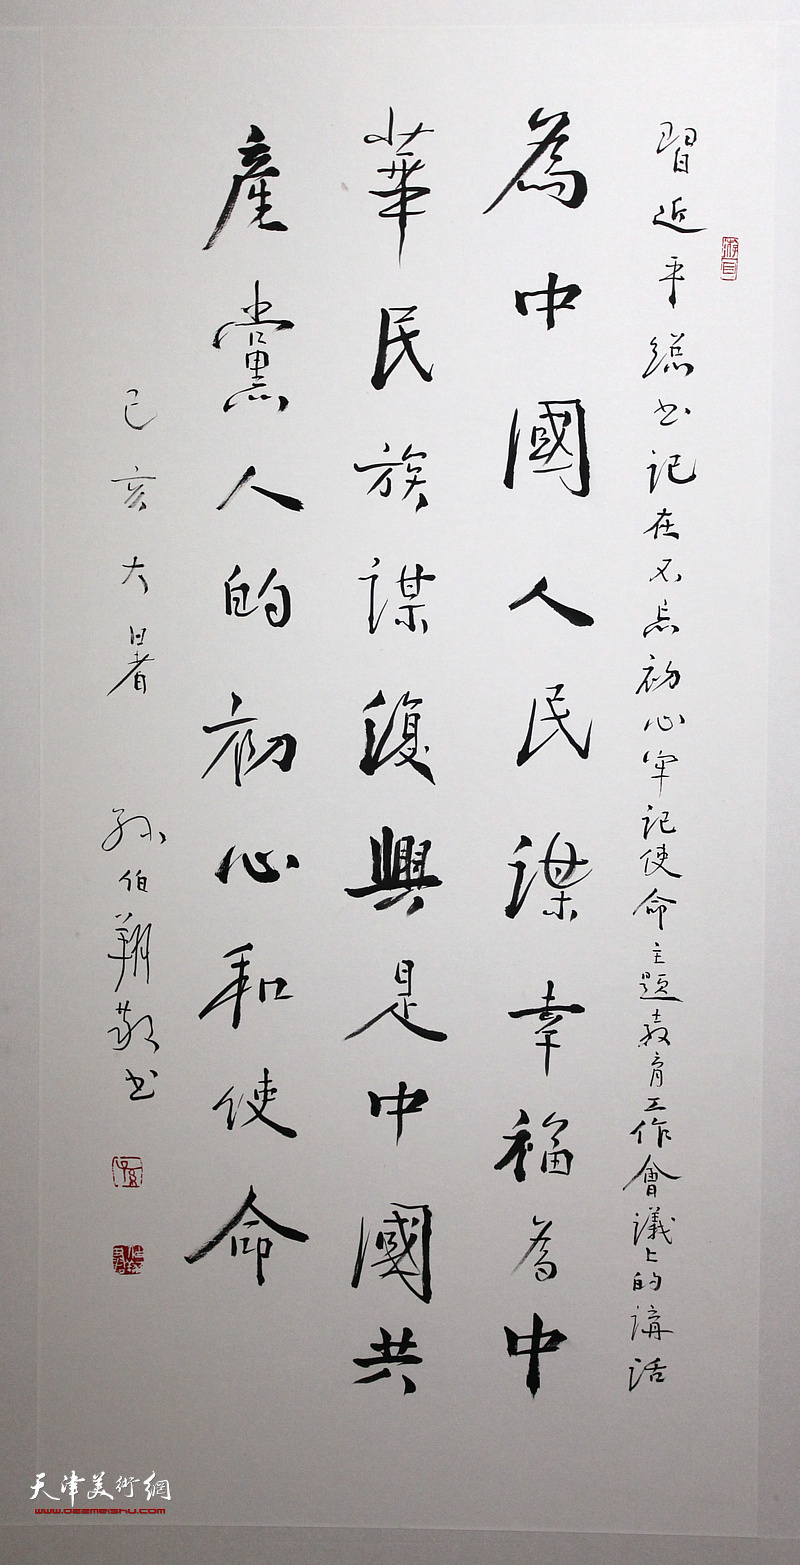 習近平總书記在不忘初心牢記使命主題教育工作會議上的講話
為中國人民謀幸福為中
華民族謀復興是中國共
產黨人的初心和使命
己亥大暑 孙伯翔敬书
天津美術網
www.022meishu.com